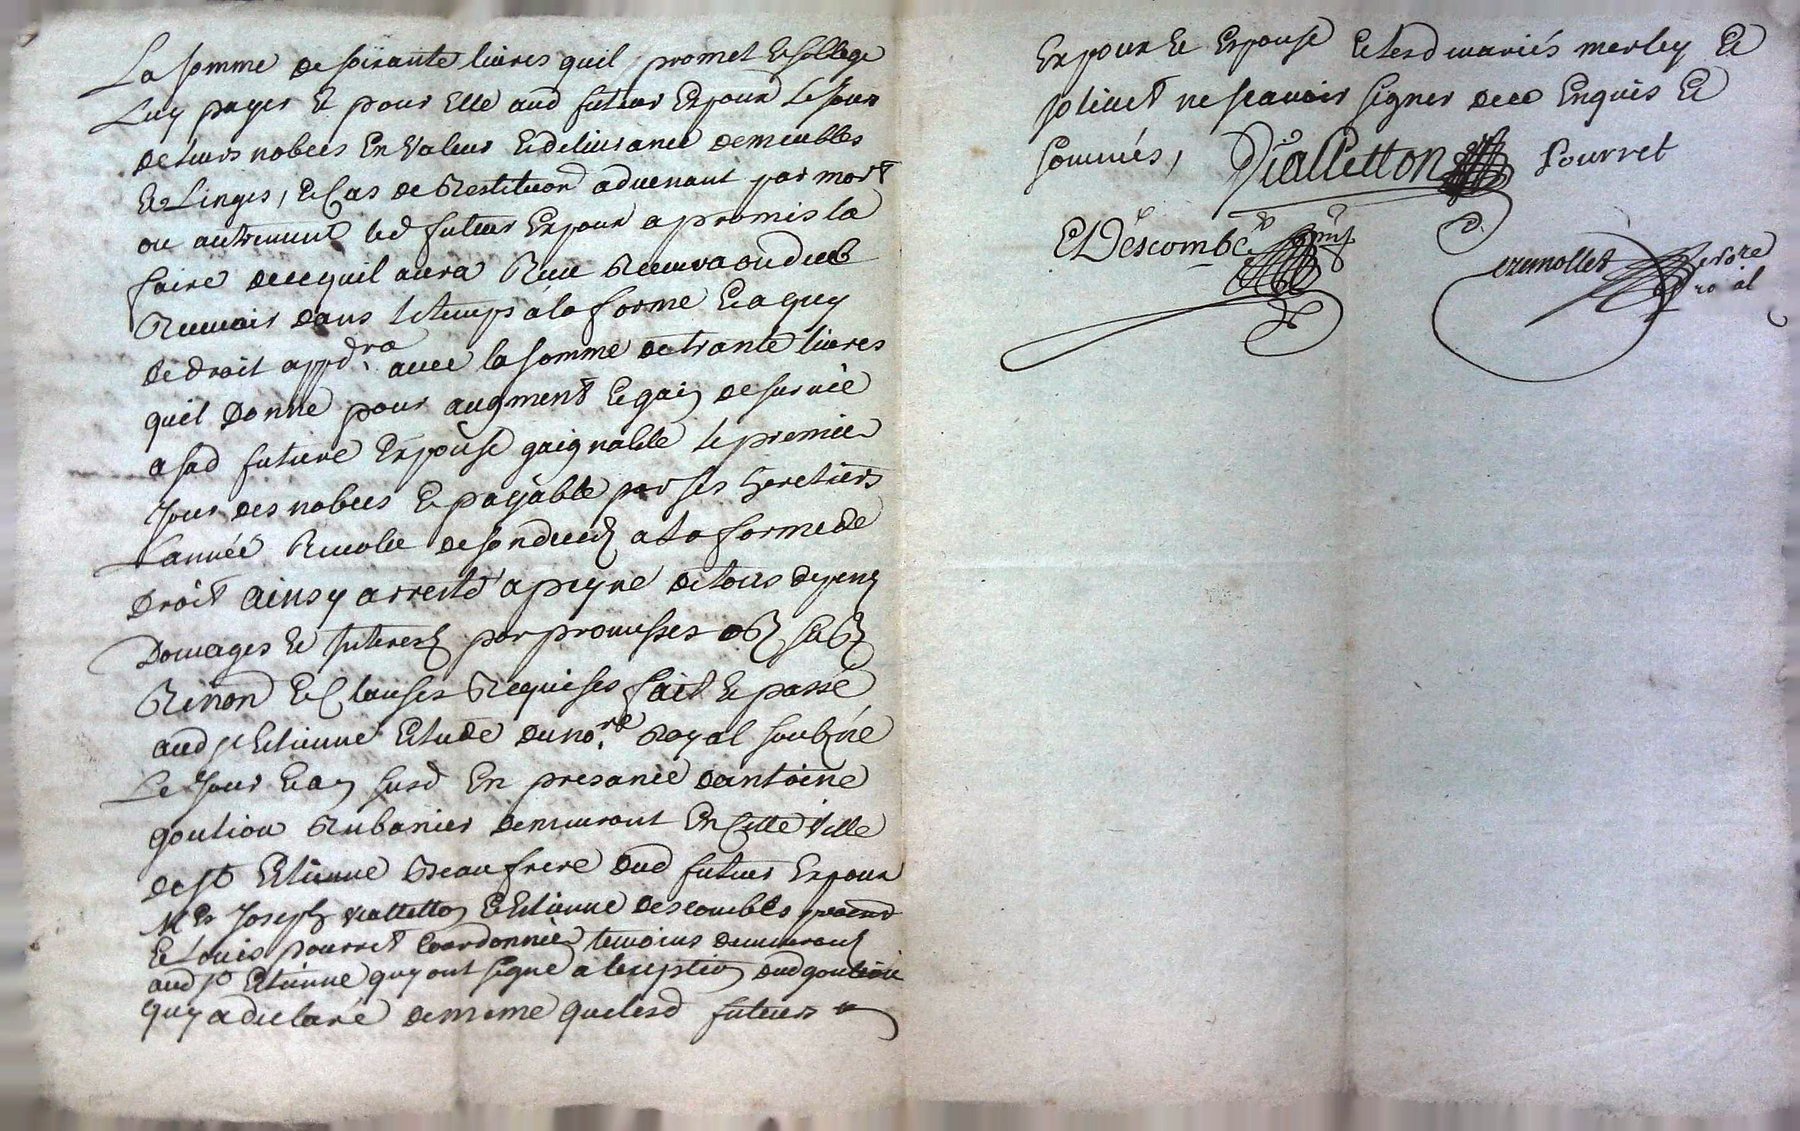 La somme de soixante livres quil promet et soblige
Luy payer et pour Elle aud futeur Expoux le jour
de leurs nobces En valeur et delivrance de meubles
et Linges, et Cas de Restituon advenant par mort
ou autrement led futeur Expoux a promis la
faire de ce quil aura Reçeu Recevra ou deub
Recevoir dans le temps a la forme et a quy
de droit appdra. avec la somme de trante livres
quil Donne pour augment et gain de survie
a sad future Expouse gaignable le premier
Jour des nobces et payable par ses heretiers
Lannée Revolue de son deceds a la forme de
Droit ainsy arresté a peyne de tous depens
Domages et Interests par promesses obn sobn
Renon et Clauses Requises fait et passé
aud St Etienne Etude du nore. Royal soubné
Le Jour et an susd En presance dantoine
goution Rubanier demeurant En Cette Ville
de St Etienne Beaufrere dud futeur Expoux
Mes Joseph vialletton et Etienne descombes
et Louis pourret Courdonnier temoins demeurants
aud St Etienne quy ont signé a lexeption dud goution
quy a declaré de meme que lesd futeurs
Expoux et Expouse et lesd mariés merley et
jolivet ne scavoir signer de ce Enquis et
sommés, Vialletton Pourret
Et Descombe
nore
roial